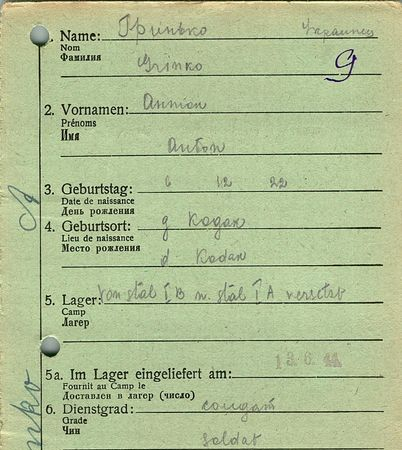 1. Name: Гринько Украинец
Nom
Фамилия Grinko
9
2. Vornamen:
Prénoms
Имя Anton
3. Geburtstag: 6 12 22
Date de naissance
День рождения
4. Geburtsort: g Kodak
Lieu de naissance
Место рождения d Kodak
5. Lager: Von stal I B n. stal I A versetzt
Camp
Лагерь
13.6.44
5a. Im Lager eingeliefert am:
Fournit au Camp le
Доставлен в лагерь (число)
6. Dienstgrad: солдат
Grade
Чин soldat
nko